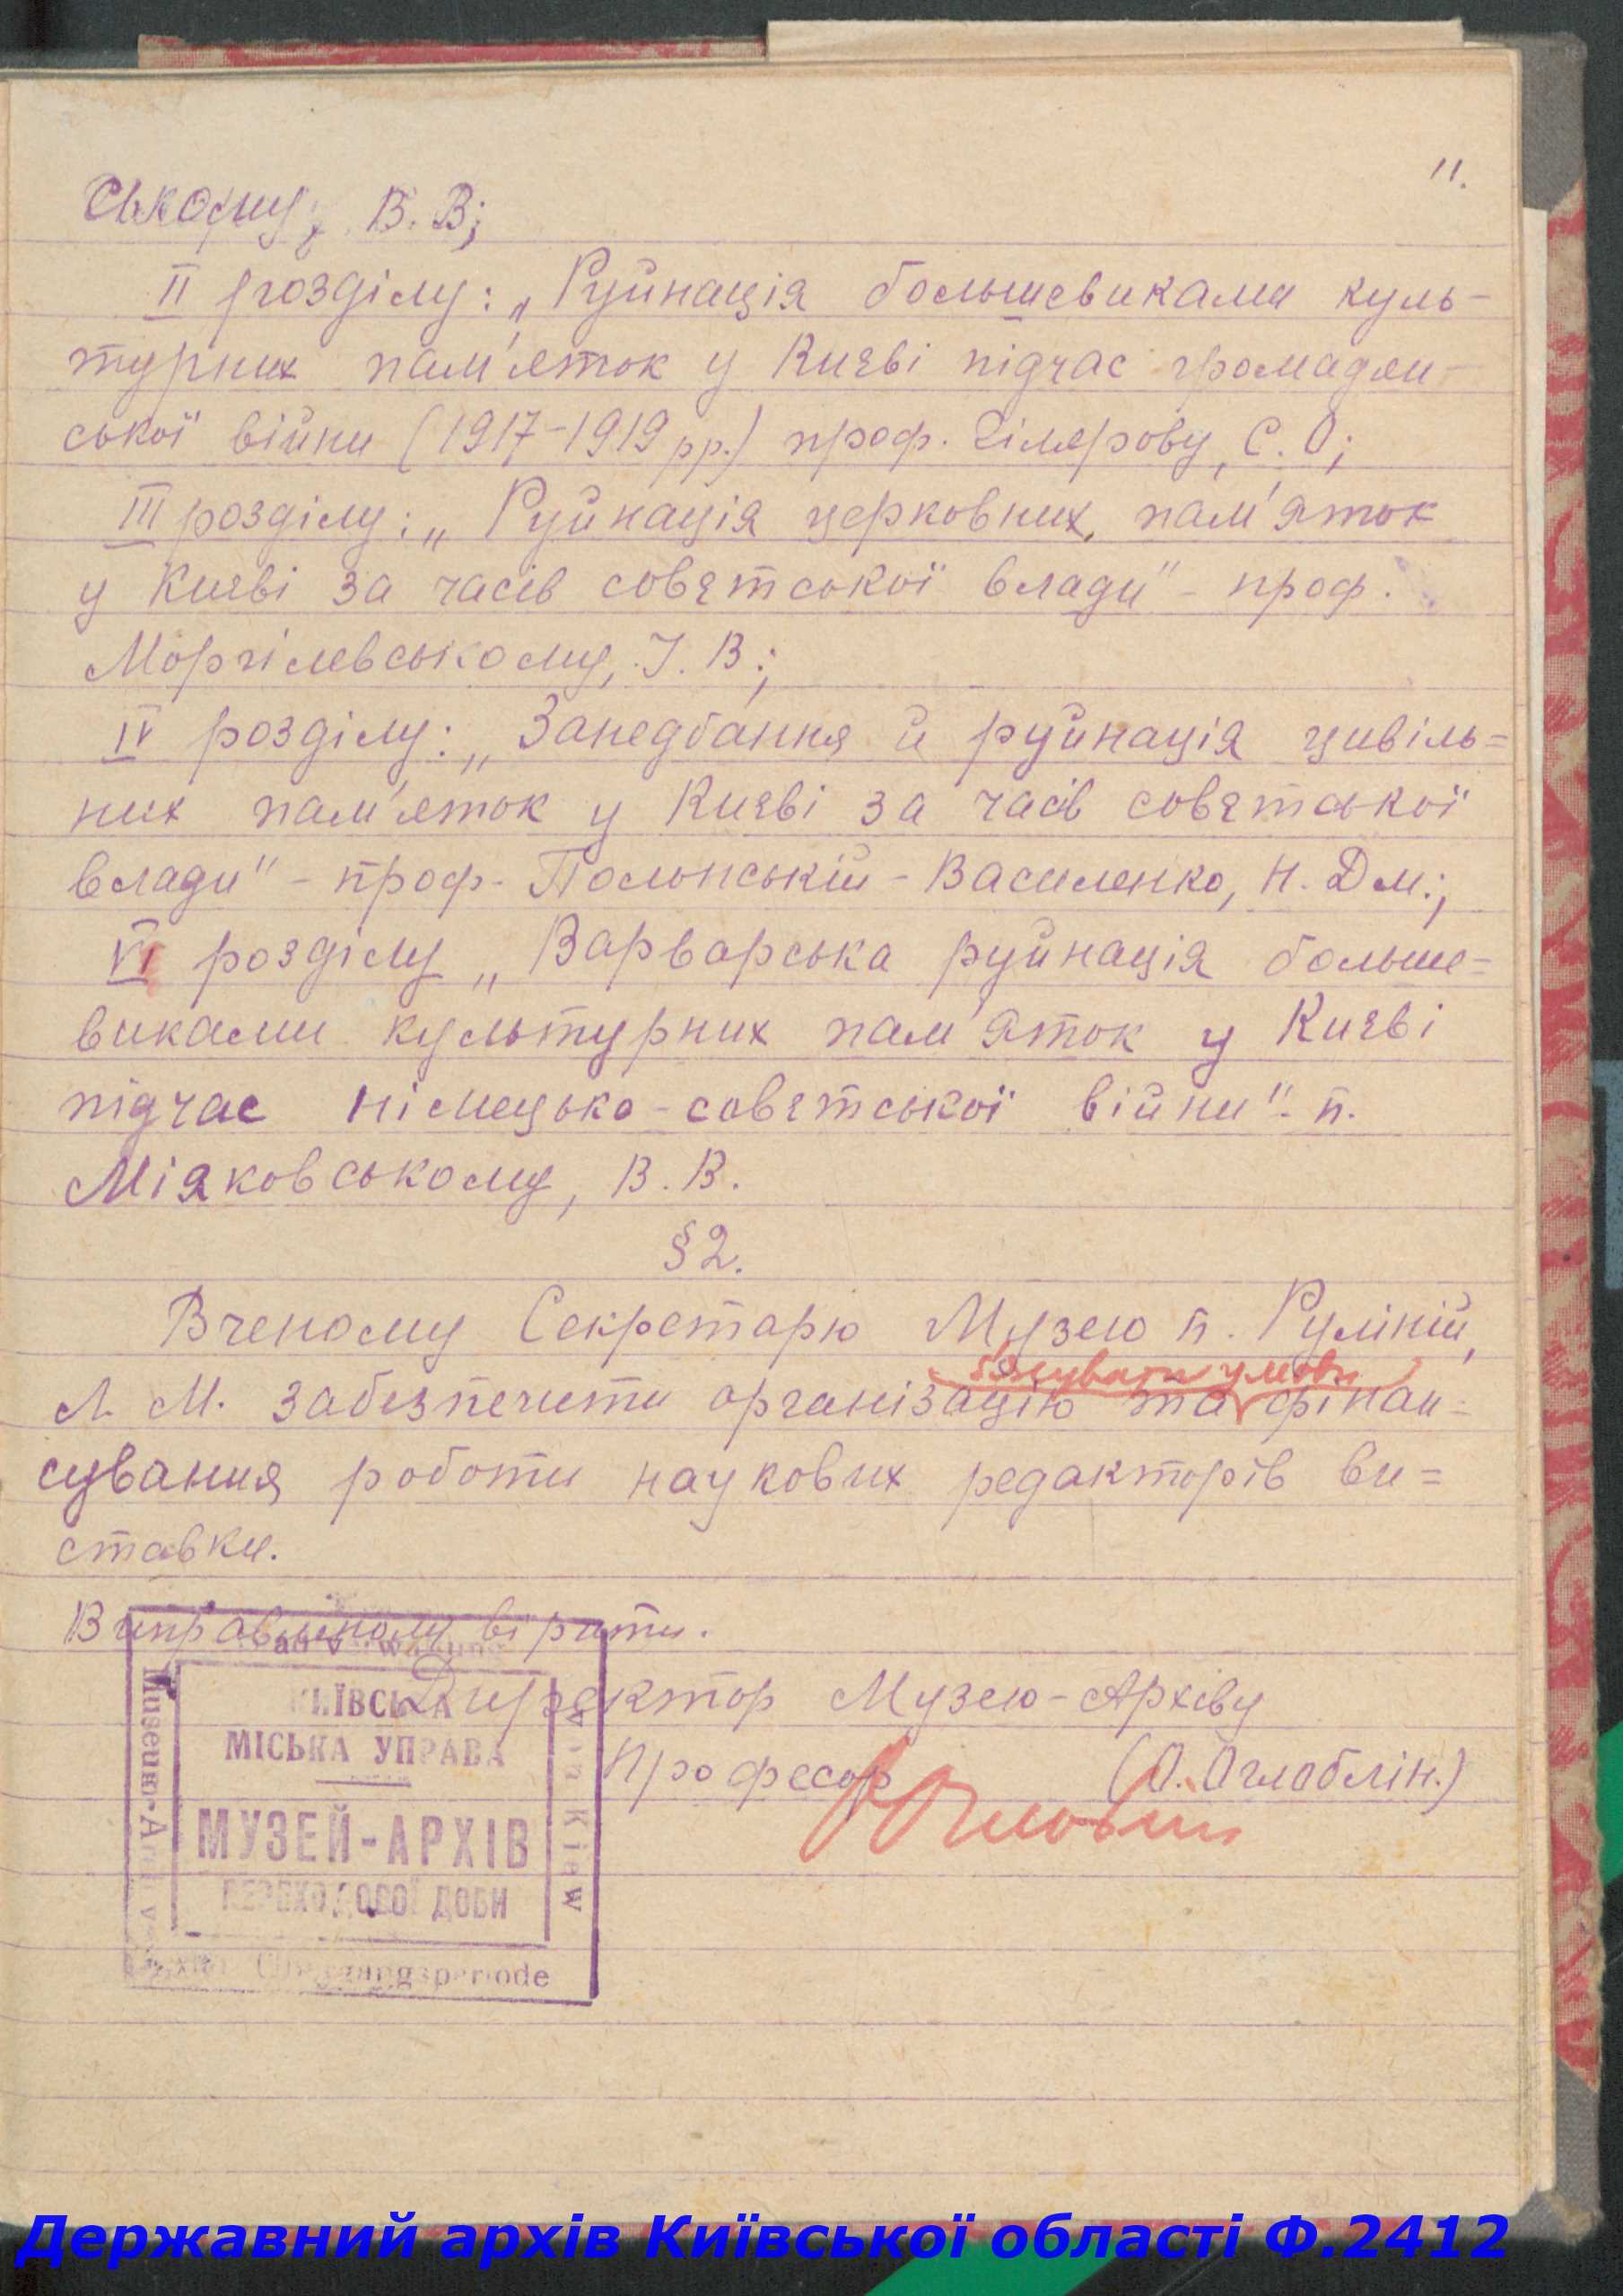 11.
ському, В. В;
II розділу: „Руйнація большевиками куль-
турних пам'яток у Києві підчас громадян-
ської війни (1917-1919 рр.) проф. Гілярову, С. О;
III розділу: „Руйнація церковних пам'яток
у Києві за часів совєтської влади" - проф.
Моргілевському, І. В.;
IV розділу: „Занедбання й руйнація цивіль=
них пам'яток у Києві за часів совєтської
влади" - проф. Полонській - Василенко, Н. Дм.;
VI розділу „Варварська руйнація больше=
виками культурних пам'яток у Києві
підчас німецько-совєтської війни" - п.
Міяковському, В. В.
§2.
Вченому Секретарю Музею п. Руліній,
умови
Л. М. забезпечити організацію та фінан=
сування роботи наукових редакторів ви=
ставки.
Виправленому вірити.
Директор Музею-Архіву
Професор (О. Оглоблін.)
КИЇВСЬКА
МІСЬКА УПРАВА
МУЗЕЙ-АРХІВ
ПЕРЕХОДОВОЇ ДОБИ
Museum-Archiv
von Kiew
Übergangsperiode
Державний архів Київської області Ф.2412